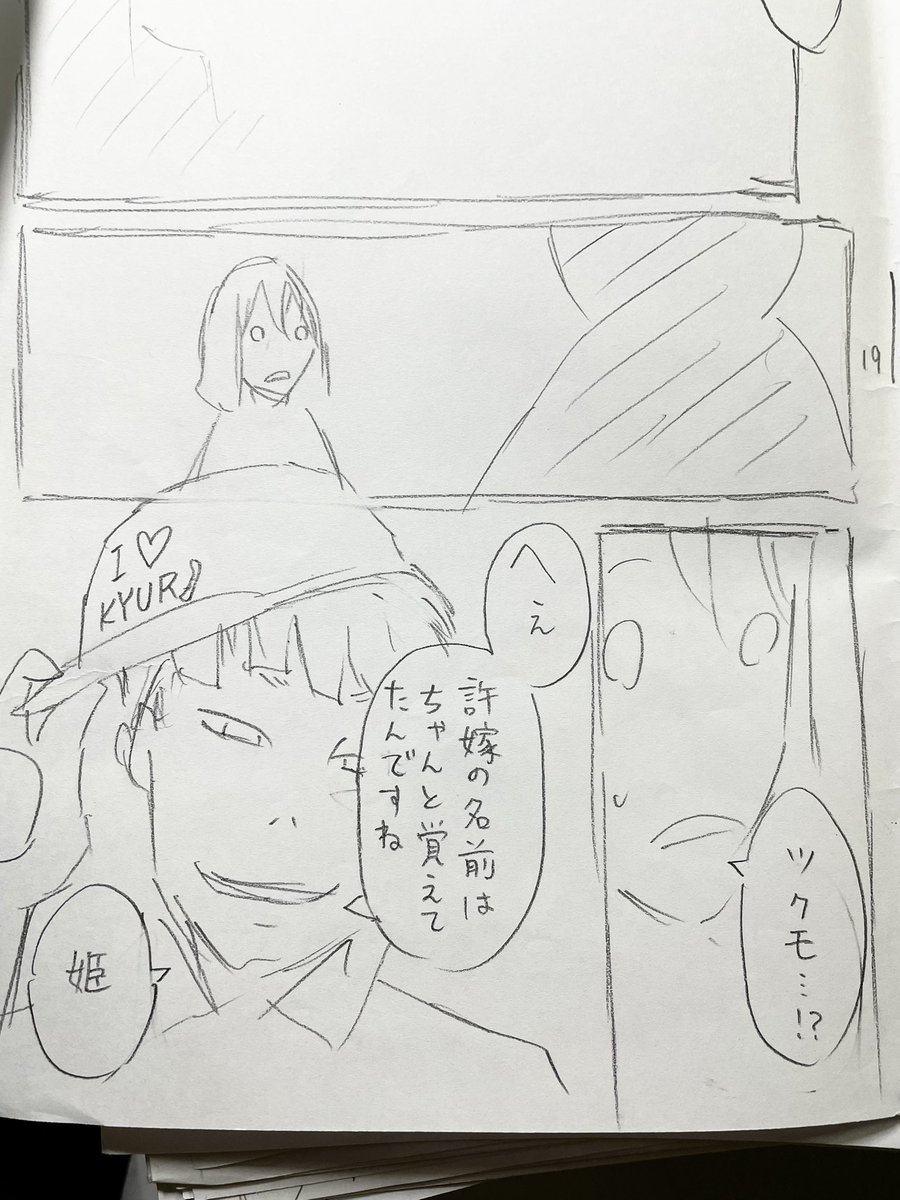 19
ツクモ…!?
へぇ
許嫁の名前は
ちゃんと覚えて
たんですね
姫
I♡
KYUR